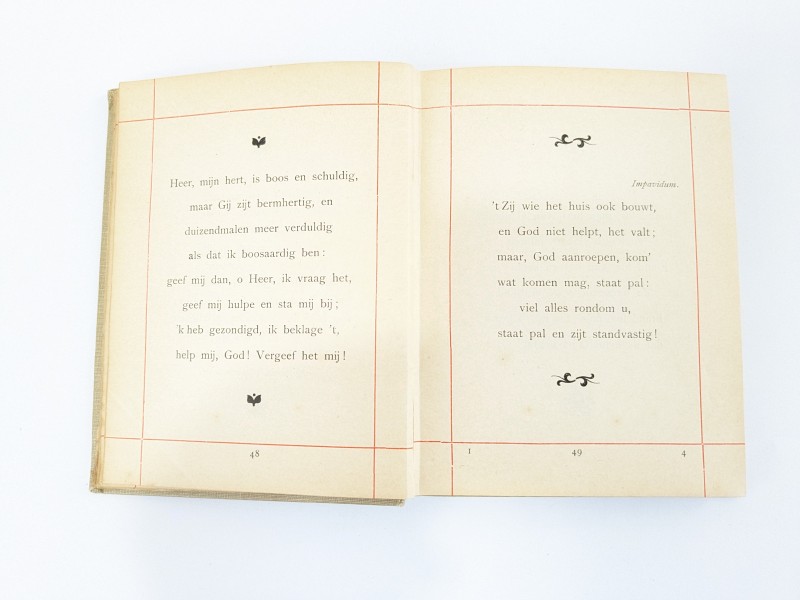 Heer, mijn hert, is boos en schuldig,
maar Gij zijt bermhertig, en
duizendmalen meer verduldig
als dat ik boosaardig ben :
geef mij dan, o Heer, ik vraag het,
geef mij hulpe en sta mij bij ;
'k heb gezondigd, ik beklage 't,
help mij, God ! Vergeef het mij !
48
Impavidum.
't Zij wie het huis ook bouwt,
en God niet helpt, het valt ;
maar, God aanroepen, kom'
wat komen mag, staat pal :
viel alles rondom u,
staat pal en zijt standvastig !
1 49 4